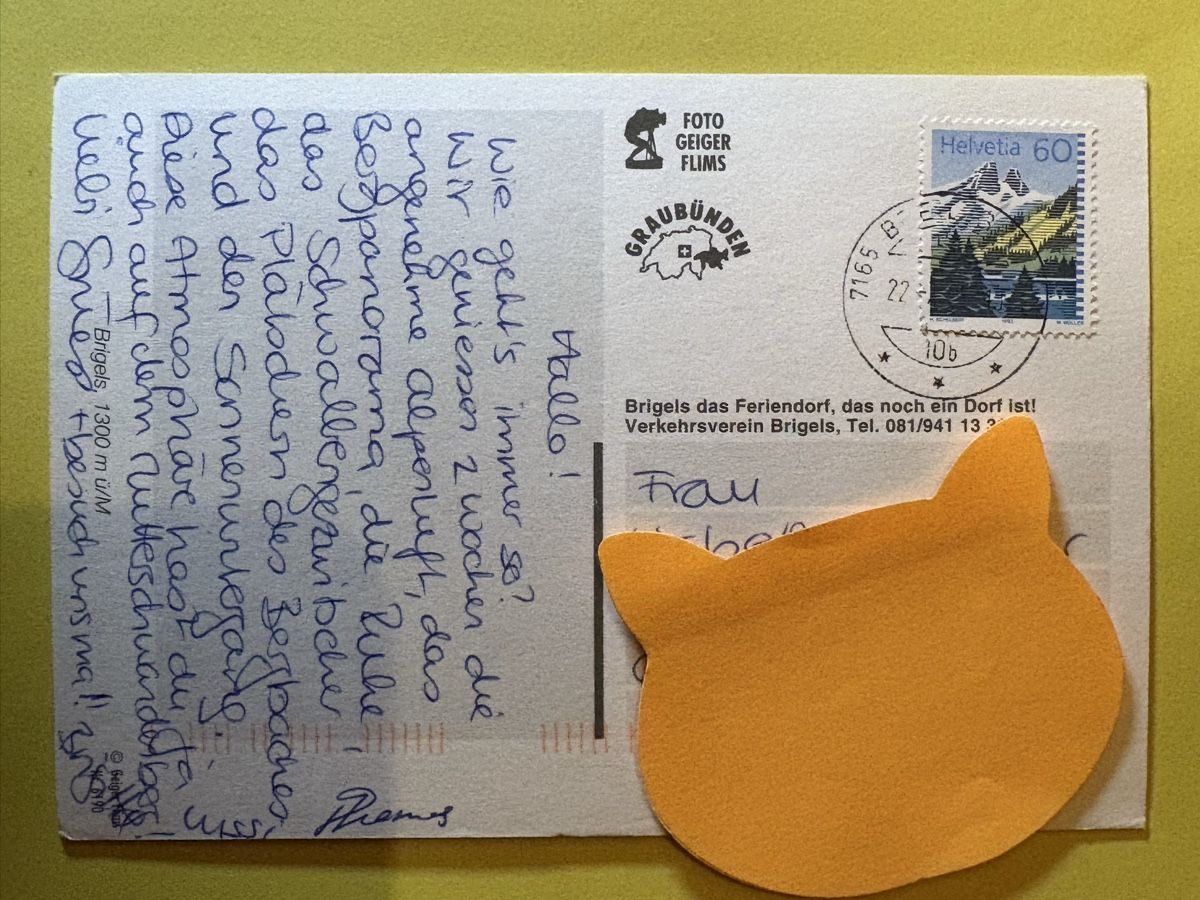 Hallo!
Wie geht's immer so?
Wir geniessen 2 Wochen die
angenehme Alpenluft, das
Bergpanorama, die Ruhe,
das Schwalbengezwitscher
das Plätschern des Bergbaches,
und der Sonnenuntergang.
Diese Atmosphäre hast du ja
auch auf dem
Liebi Grüess + bsuch uns mal!
Thomas
Brigels, 1300 m ü/M
FOTO
GEIGER
FLIMS
GRAUBÜNDEN
Helvetia 60
7165 B
22
10b
Brigels das Feriendorf, das noch ein Dorf ist!
Verkehrsverein Brigels, Tel. 081/941 13
Frau